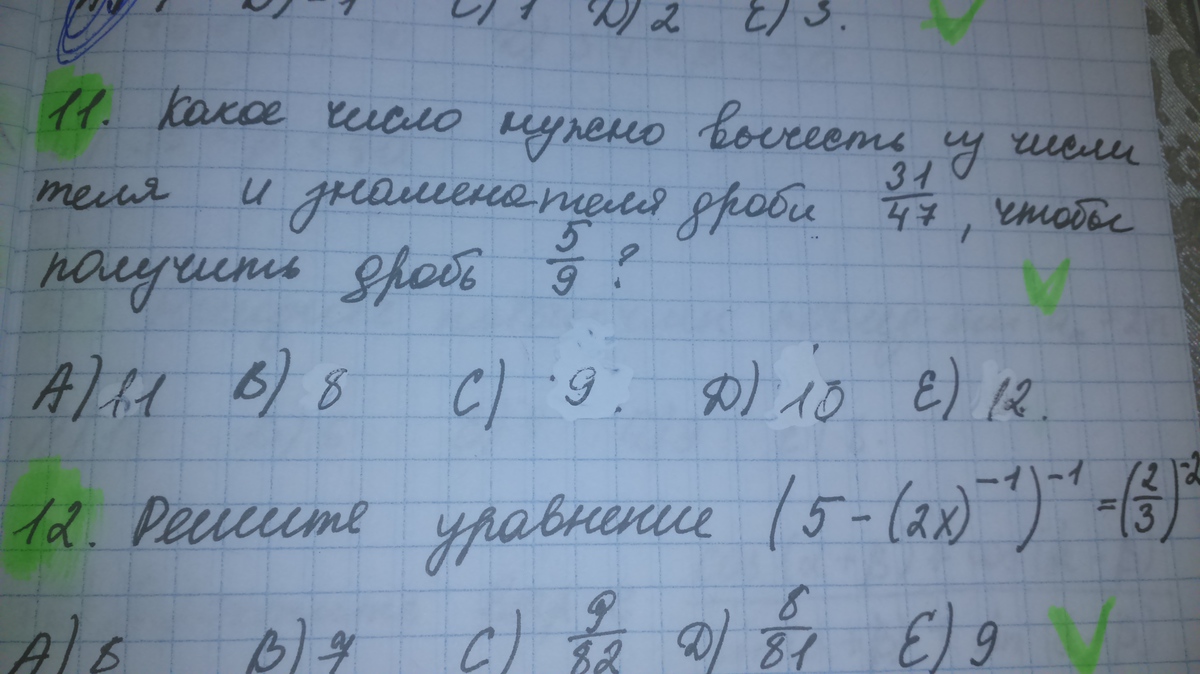 B) -1 C) 1 D) 2 E) 3.
11. Какое число нужно вычесть из числи
теля и знаменателя дроби 31/47, чтобы
получить дробь 5/9?
A) 11 B) 8 C) 9. D) 10 E) 12.
12. Решите уравнение (5-(2x)^-1)^-1 = (2/3)^-2
A) 8 B) 7 C) 9/82 D) 8/81 E) 9